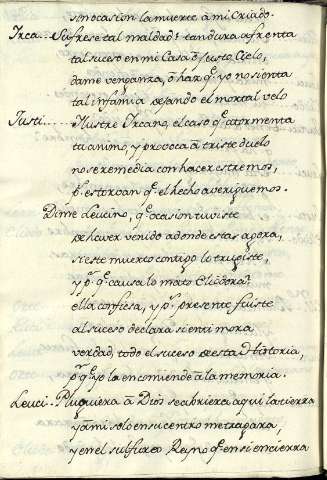 sin ocasion la muerte à mi criado.
Irca.. Sufrese tal maldad? tan dura afrenta
tal suceso en mi Casa ò justo Cielo,
dame venganza, ò haz qe. yo no sienta
tal infamia dejando el mortal velo
Justi.... Ilustre Ircano, el caso qe. atormenta
tu animo, y provoca à triste duelo
no se remedia con hacer estremos,
pr. estorvan qe. el hecho averiguemos.
Dime Leucino, qe. ocasion tuviste
de haver venido adonde estas agora,
si este muerto contigo lo trugiste,
y pr. qe. causa lo mato Eliodora?
ella confiesa, y pr. presente fuiste
al suceso declara sientimora
verdad, todo el suceso de esta Historia,
pr. qe. yo la encomiende à la memoria.
Leuci.. Pluguiera à Dios se abriera aqui la tierra
y a mi solo en su centro me tragara,
y en el sulfureo Reyno qe. en si encierra